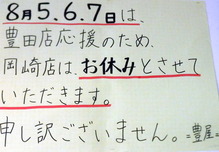 8月5.6.7日は、
豊田店応援のため、
岡崎店は、お休みとさせて
いただきます。
申し訳ございません。=豊屋=